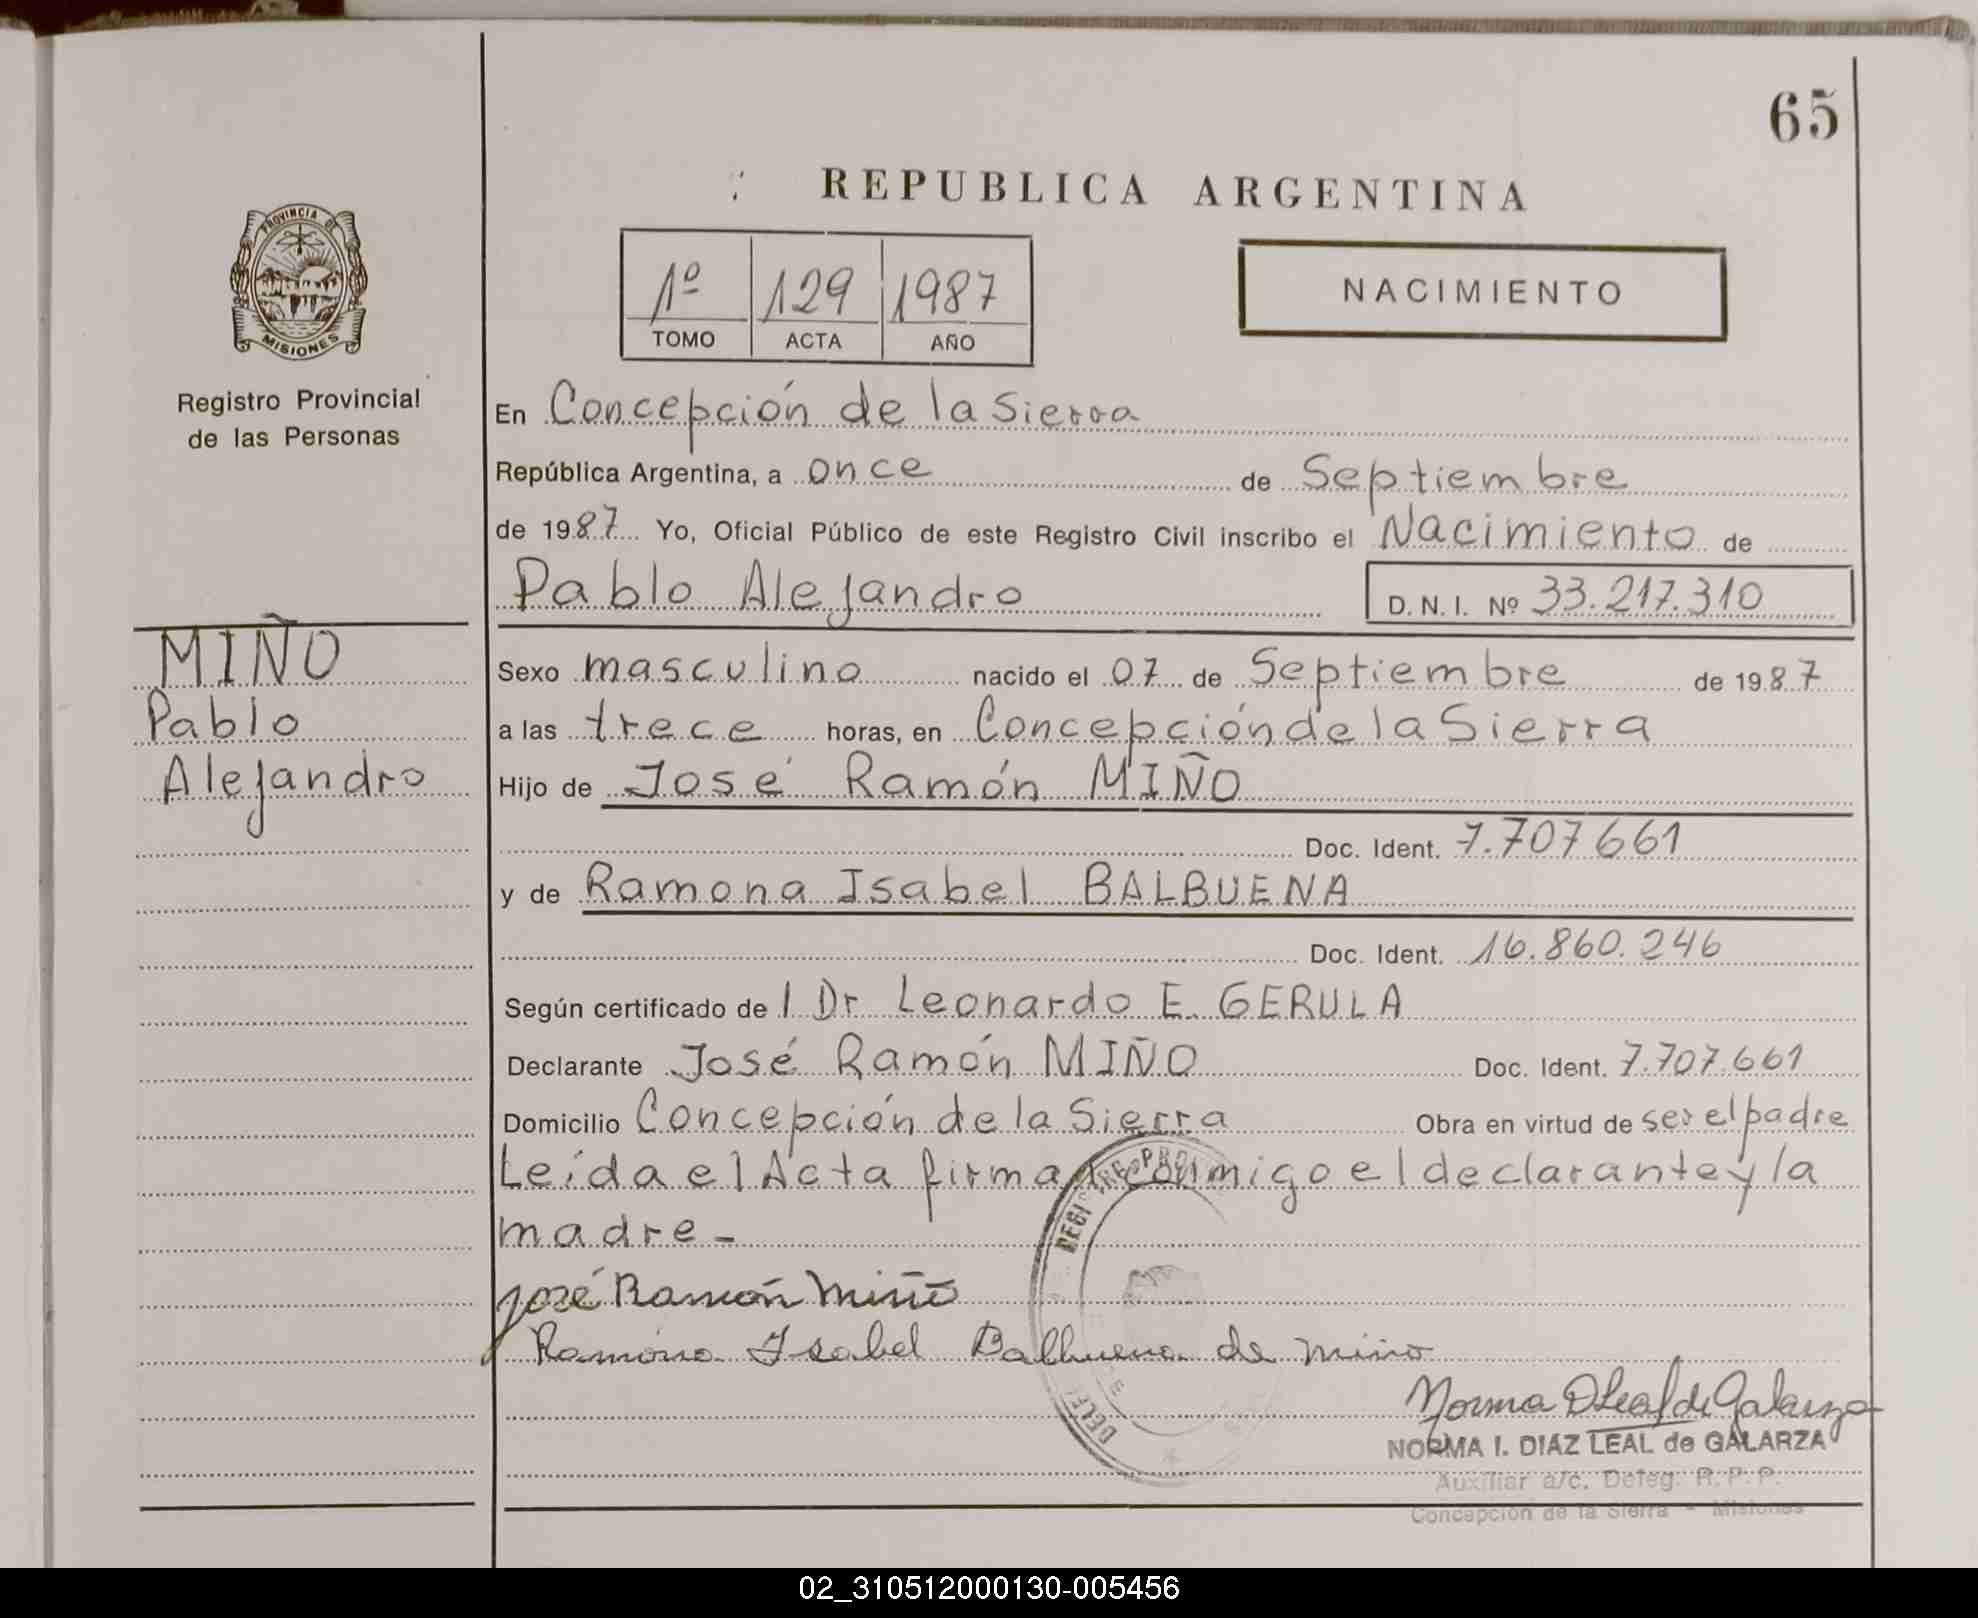 65
REPUBLICA ARGENTINA
PROVINCIA DE
MISIONES
Registro Provincial
de las Personas
1º 129 1987
TOMO ACTA AÑO
NACIMIENTO
En Concepción de la Sierra
República Argentina, a once de Septiembre
de 1987 Yo, Oficial Público de este Registro Civil inscribo el Nacimiento de
Pablo Alejandro D.N.I. Nº 33.217.310
MIÑO
Pablo
Alejandro
Sexo masculino nacido el 07 de Septiembre de 1987
a las trece horas, en Concepción de la Sierra
Hijo de José Ramón MIÑO
Doc. Ident. 7.707661
y de Ramona Isabel BALBUENA
Doc. Ident. 16.860.246
Según certificado de l Dr Leonardo E. GERULA
Declarante José Ramón MIÑO Doc. Ident. 7.707.661
Domicilio Concepción de la Sierra Obra en virtud de ser el padre
Leída el Acta firma conmigo el declarante y la
madre -
José Ramón Miño
Ramona Isabel Balbuena de Miño
Norma D Leal de Galarza
NORMA I. DIAZ LEAL de GALARZA
Auxiliar a/c. Deleg. R. P. P.
Concepción de la Sierra - Misiones
02_310512000130-005456